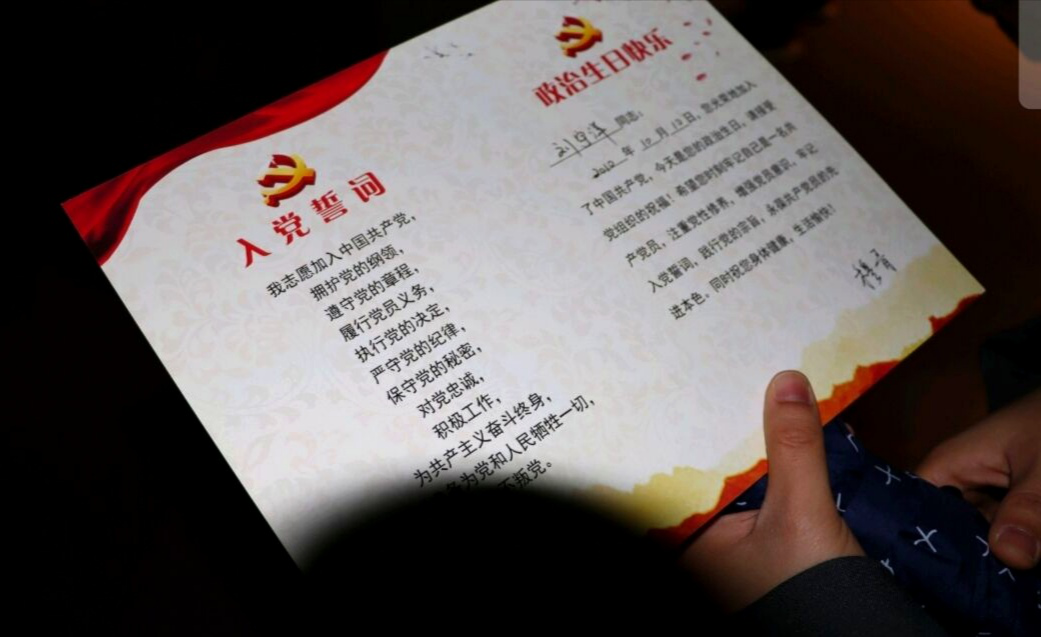 入党誓词
我志愿加入中国共产党,
拥护党的纲领,
遵守党的章程,
履行党员义务,
执行党的决定,
严守党的纪律,
保守党的秘密,
对党忠诚,
积极工作,
为共产主义奋斗终身,
为党和人民牺牲一切,
不叛党。
政治生日快乐
同志:
2012年10月12日,您光荣地加入
了中国共产党,今天是您的政治生日,请接受
党组织的祝福!希望您时刻牢记自己是一名共
产党员,注重党性修养,增强党员意识,牢记
入党誓词,践行党的宗旨,永葆共产党员的先
进本色。同时祝您身体健康,生活愉快!